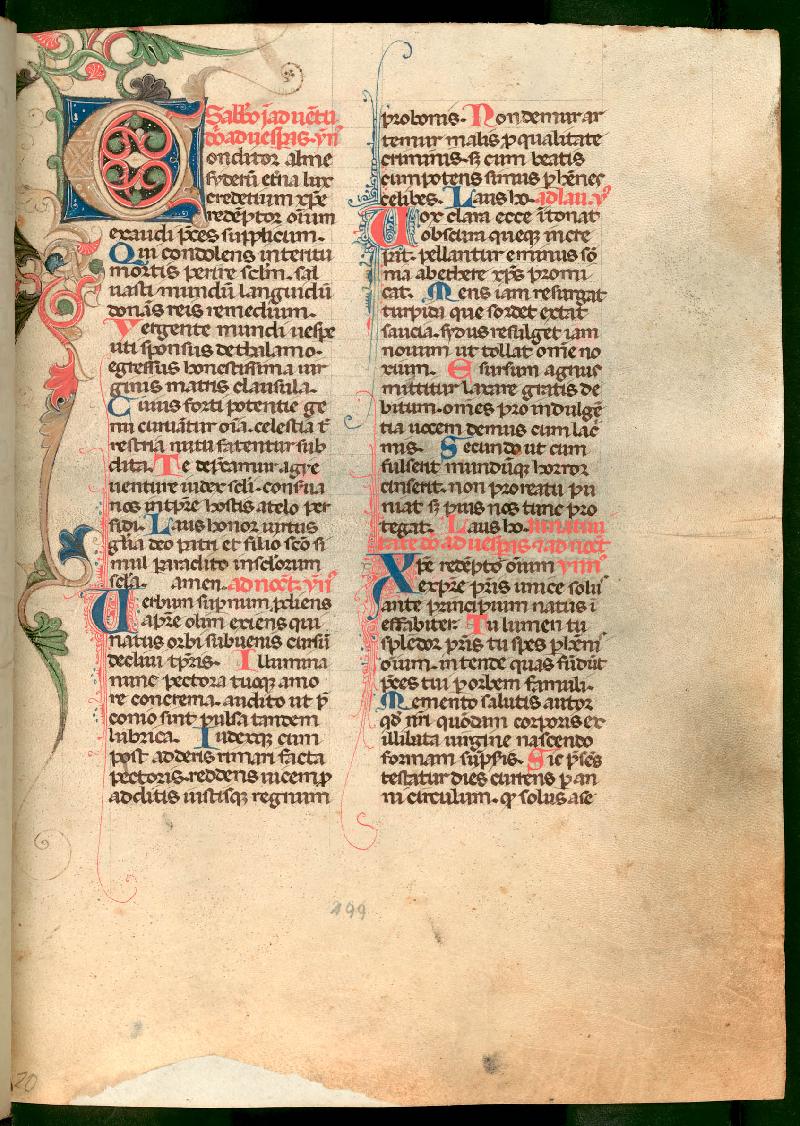 Sabb̄o ī aduētu
dō ad uesp̄is. yn̄
Conditor alme
syderū et̄na lux
credentium xp̄e
redēptor oīum
exaudi p̄ces supplicum.
Qui condolens interitu
mortis perire sclm̄. sal
uasti mundū languidū
donās reis remedium.
Vergente mundi uespe
uti sponsus de thalamo.
egressus honestissima uir
ginis matris clausula.
Cuius forti potentie ge
nu curuātur oīa. celestia t̄
restria nutu fatentur sub
dita. Te dep̄camur agye
uenture iudex scli. conserua
nos intp̄re hostis a telo per
fidi. Laus honor uirtus
gl̄ia deo patri et filio scō si
mul paraclito in sclorum
scla. amen. ad noct̄. yn̄
Uerbum sup̄num p̄diens
a p̄re olim exiens qui
natus orbi subuenis cursū
decliui tp̄ris. Illumina
nunc pectora tuoq; amo
re concrema. audito ut p̄
conio sint pulsa tandem
lubrica. Iudexq; cum
post adderis rimari facta
pectoris. reddens uicem p
abditis iustisq; regnum
pro bonis. Non demum ar
temur malis p qualitate
criminis. s̄ cum beatis
cumpotens simus p̄hēnes
celibes. Laus ho. ad lau. y̅
Uox clara ecce ītonat
obscura queq; incre
pit. pellantur eminus sō
nia ab ethere xp̄s promi
cat. Mens iam resurgat
turpida que sordet extat
saucia. sydus refulget iam
nouum ut tollat om̄e no
xium. E sursum agnus
mittitur laxare gratis de
bitum. om̄es pro indulgē
tia uocem demus cum lac̄
mis. Secundo ut cum
fulserit mundūq; horror
cinxerit. non pro reatu pu
niat s̄ pius nos tunc pro
tegat. Laus ho. in natiui
tate dō ad uesp̄is ⁊ ad noct̄
Xp̄e redēptor oīum ymn̄
ex p̄re p̄ris unice solus
ante principium natus ī
effabiliter. Tu lumen tu
splēdor p̄ris tu spes p̄hēnis
oīum. intende quas fūdūt
p̄ces tui p orbem famuli.
Memento salutis autor
qd̄ nr̄i quōdam corporis ex
illibata uirgine nascendo
formam sūpsis. Sic p̄sēs
testatur dies currens p an
ni circulum. qd̄ solus a se
199
20